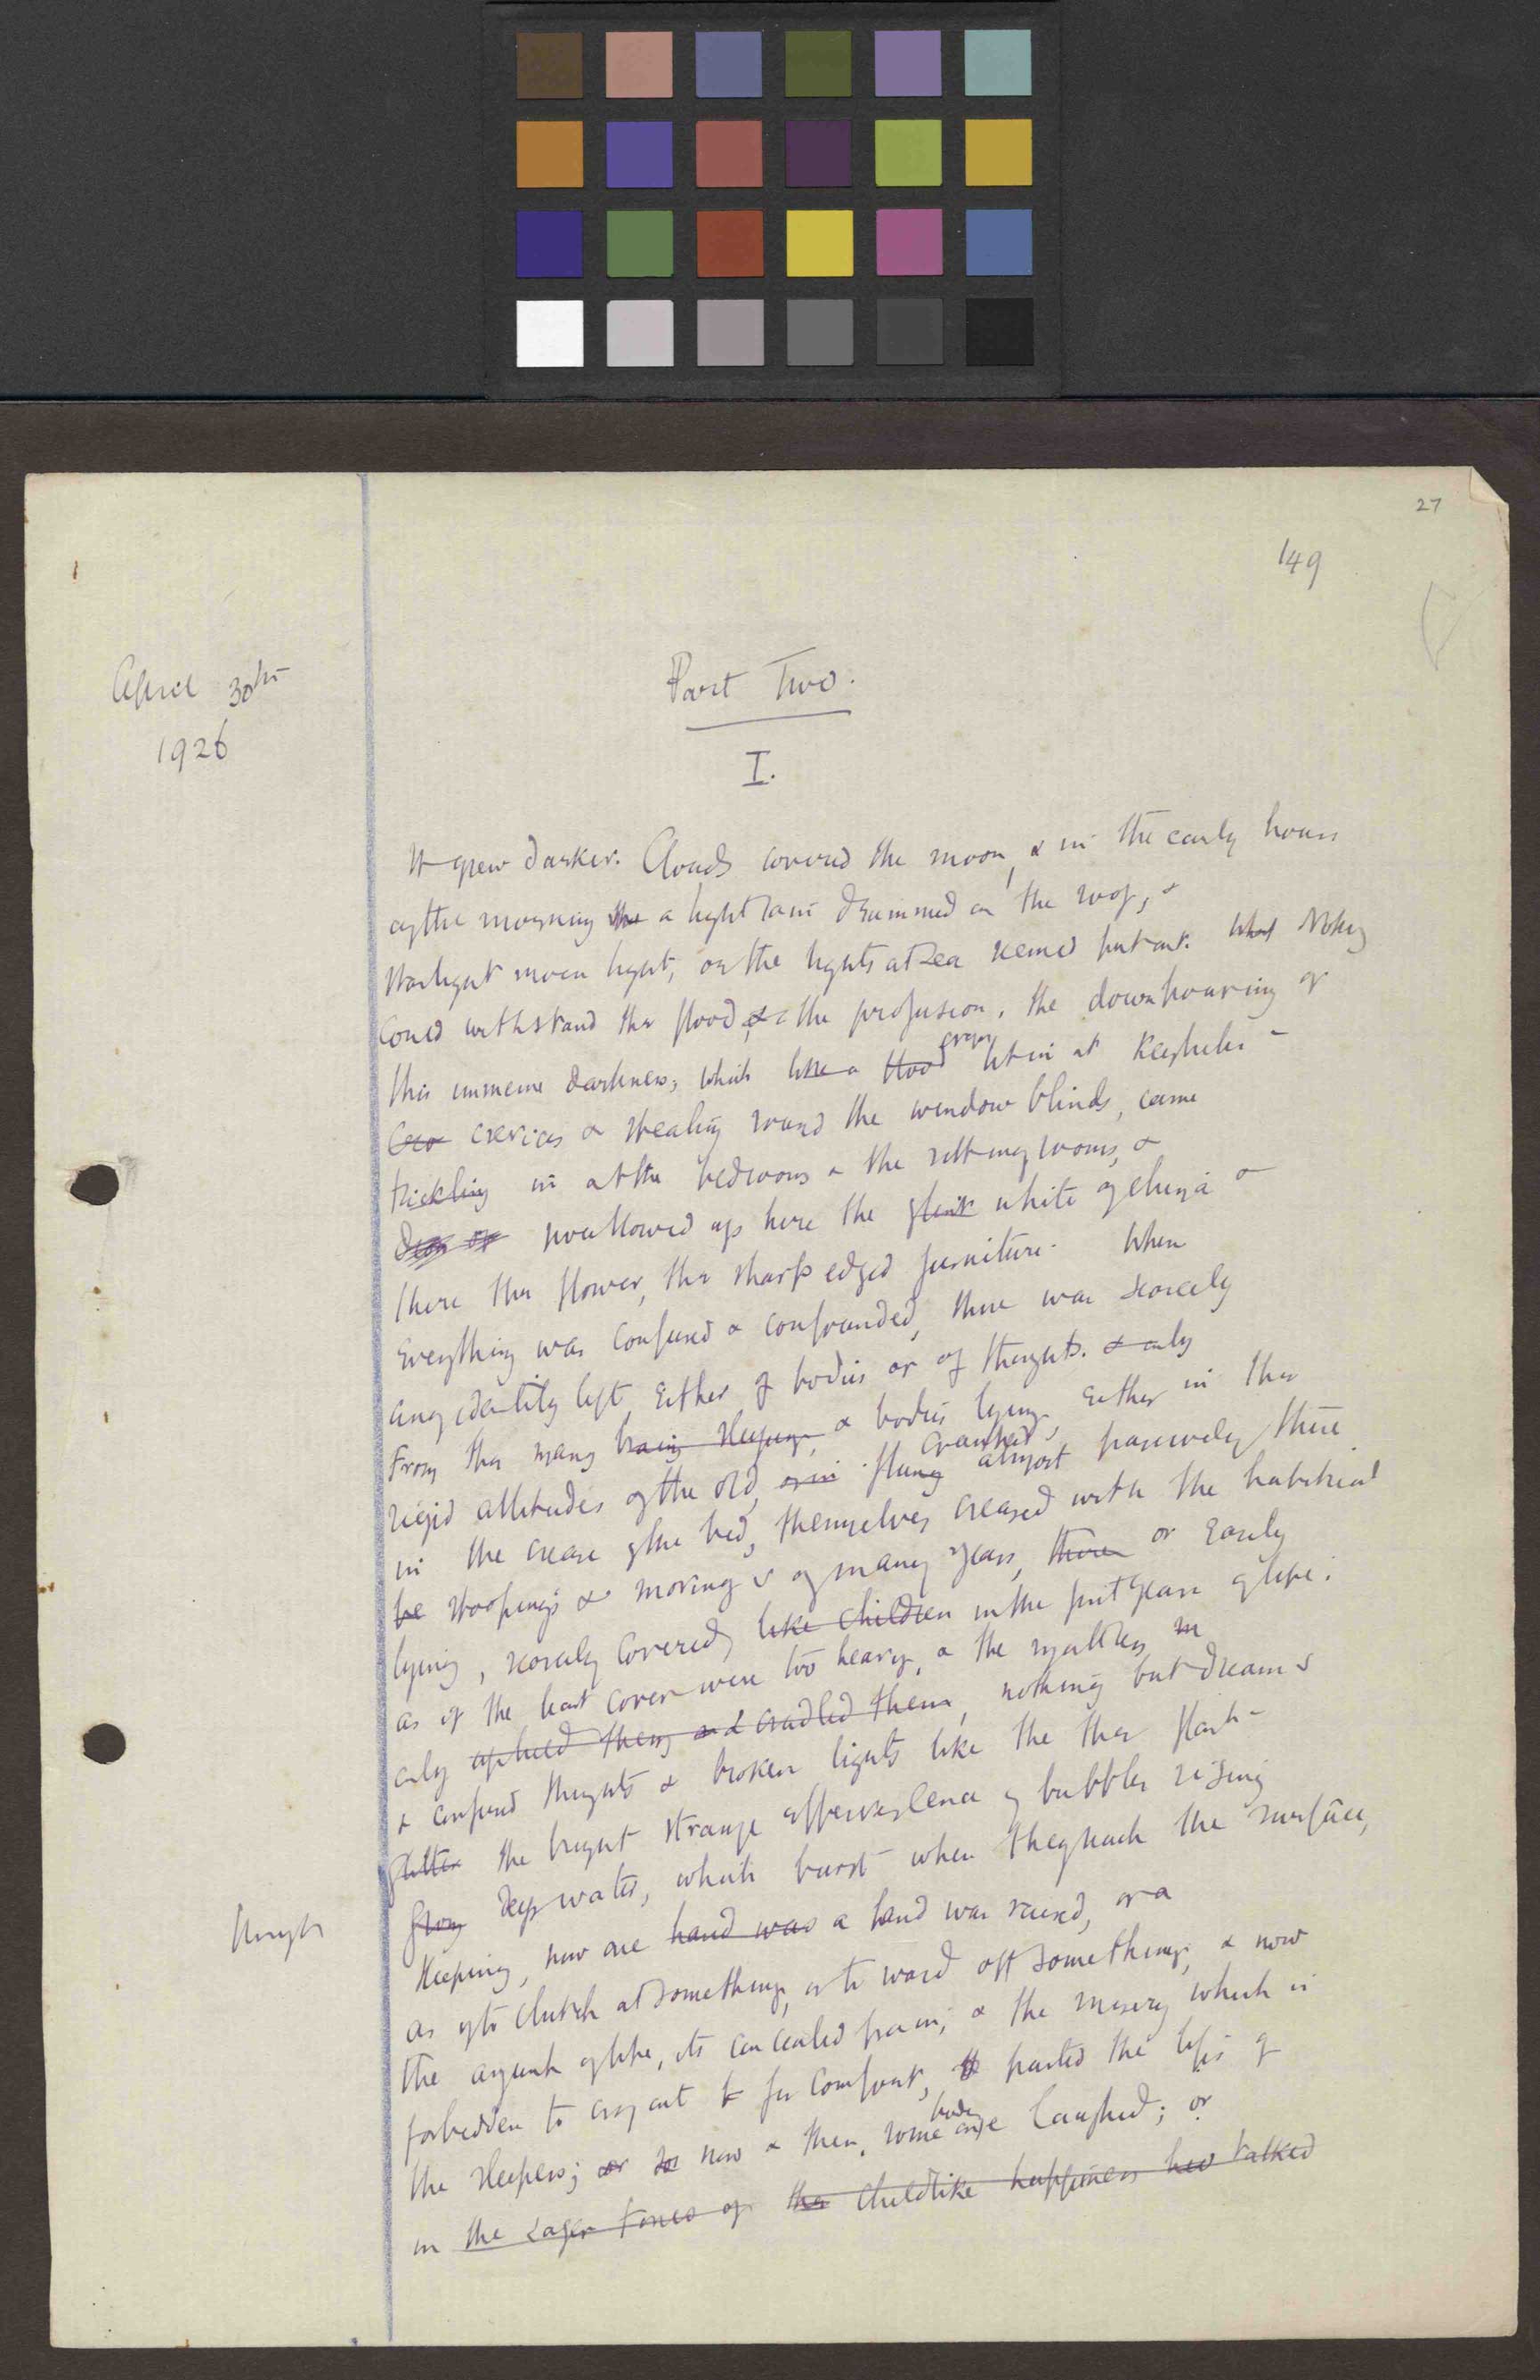 27
149
April 30th
1926
Part Two.
I.
It grew darker. Clouds covered the moon, & in the early hours
of the morning the a light rain drummed on the roof, &
starlight moon light, or the lights at sea seemed put out. What Nothing
could withstand the flood, & the profusion, the downpouring of
this immense darkness; which like a flood crept in at keyholes &
crevices & stealing round the window blinds, came
trickling in at the bedrooms & the sitting rooms, &
swallowed up here the white of china &
there the flower, the sharp edged furniture. When
Everything was confused & confounded, there was scarcely
any identity left either of bodies or of thoughts. & only
From the many sleeping, & bodies lying, either in the
rigid attitudes of the old, or in flung crumpled almost passively there
in the crease of the bed, themselves creased with the habitual
be stoopings & movings of many years, there or easily
lying, scarcely covered, like children in the first year of life;
as if the least cover were too heavy, & the mattress
only upheld them and cradled them, nothing but dreams
& confused thoughts & broken lights like the the
the bright strange effervescence of bubbles rising
from deep water, which burst when they reach the surface,
Sleeping, now one hand was a hand was raised, or a
as if to clutch at something, or to ward off something, & now
the anguish of life, its concealed pain, & the misery which is
forbidden to cry out for comfort, parted the lips of
the sleepers; or now & then, some body one laughed; or
in the eager tones of the childlike happiness had talked